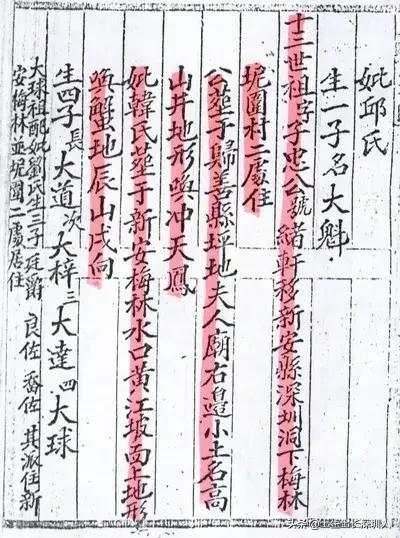 妣邱氏
生一子名大魁
十三世祖字子忠公號緒軒移新安縣深圳洞下梅林
坭圍村二處住
公葬于歸善縣坪地夫人廟右邉小土名高
山井地形喚冲天鳳
妣韓氏葬于新安梅林水口黄江坡面上地形
喚蟹地辰山戌向
生四子長大道次大梓三大達四大球
大球祖配妣劉氏生三子廷爵 良佐 喬佐 其派住新
安梅林並坭圍二處居住